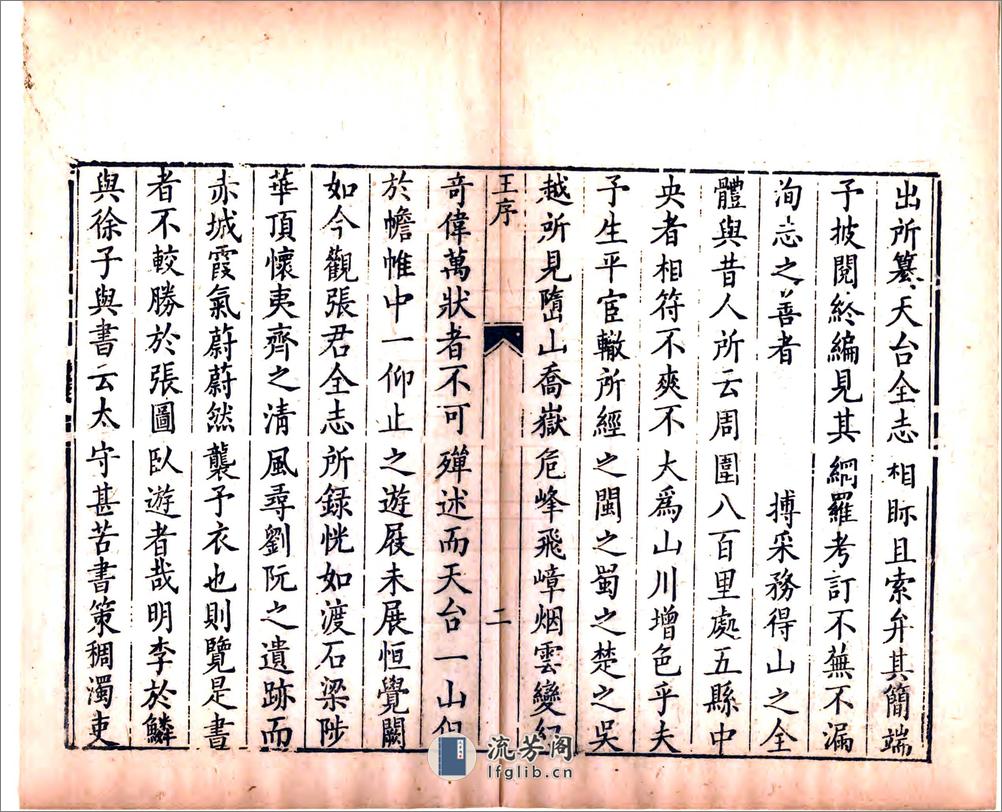 出所纂天台全志相眎且索弁其簡端
予披閱終編見其網羅考訂不蕪不漏
洵志之善者　　　搏采務得山之全
體與昔人所云周圍八百里處五縣中
央者相符不爽不大爲山川增色乎夫
予生平宦轍所經之閩之蜀之楚之吳
越所見墮山喬嶽危峰飛嶂烟雲變幻
王序
二
竒偉萬狀者不可殫述而天台一山但
於幨帷中一仰止之遊屐未展恒覺闕
如今觀張君全志所録恍如渡石梁陟
華頂懷夷齊之清風尋劉阮之遺跡而
赤城霞氣蔚蔚然襲予衣也則覽是書
者不較勝於張圖臥遊者哉明李於鱗
與徐子與書云太守甚苦書策稠濁吏
流芳阁
lfglib.cn